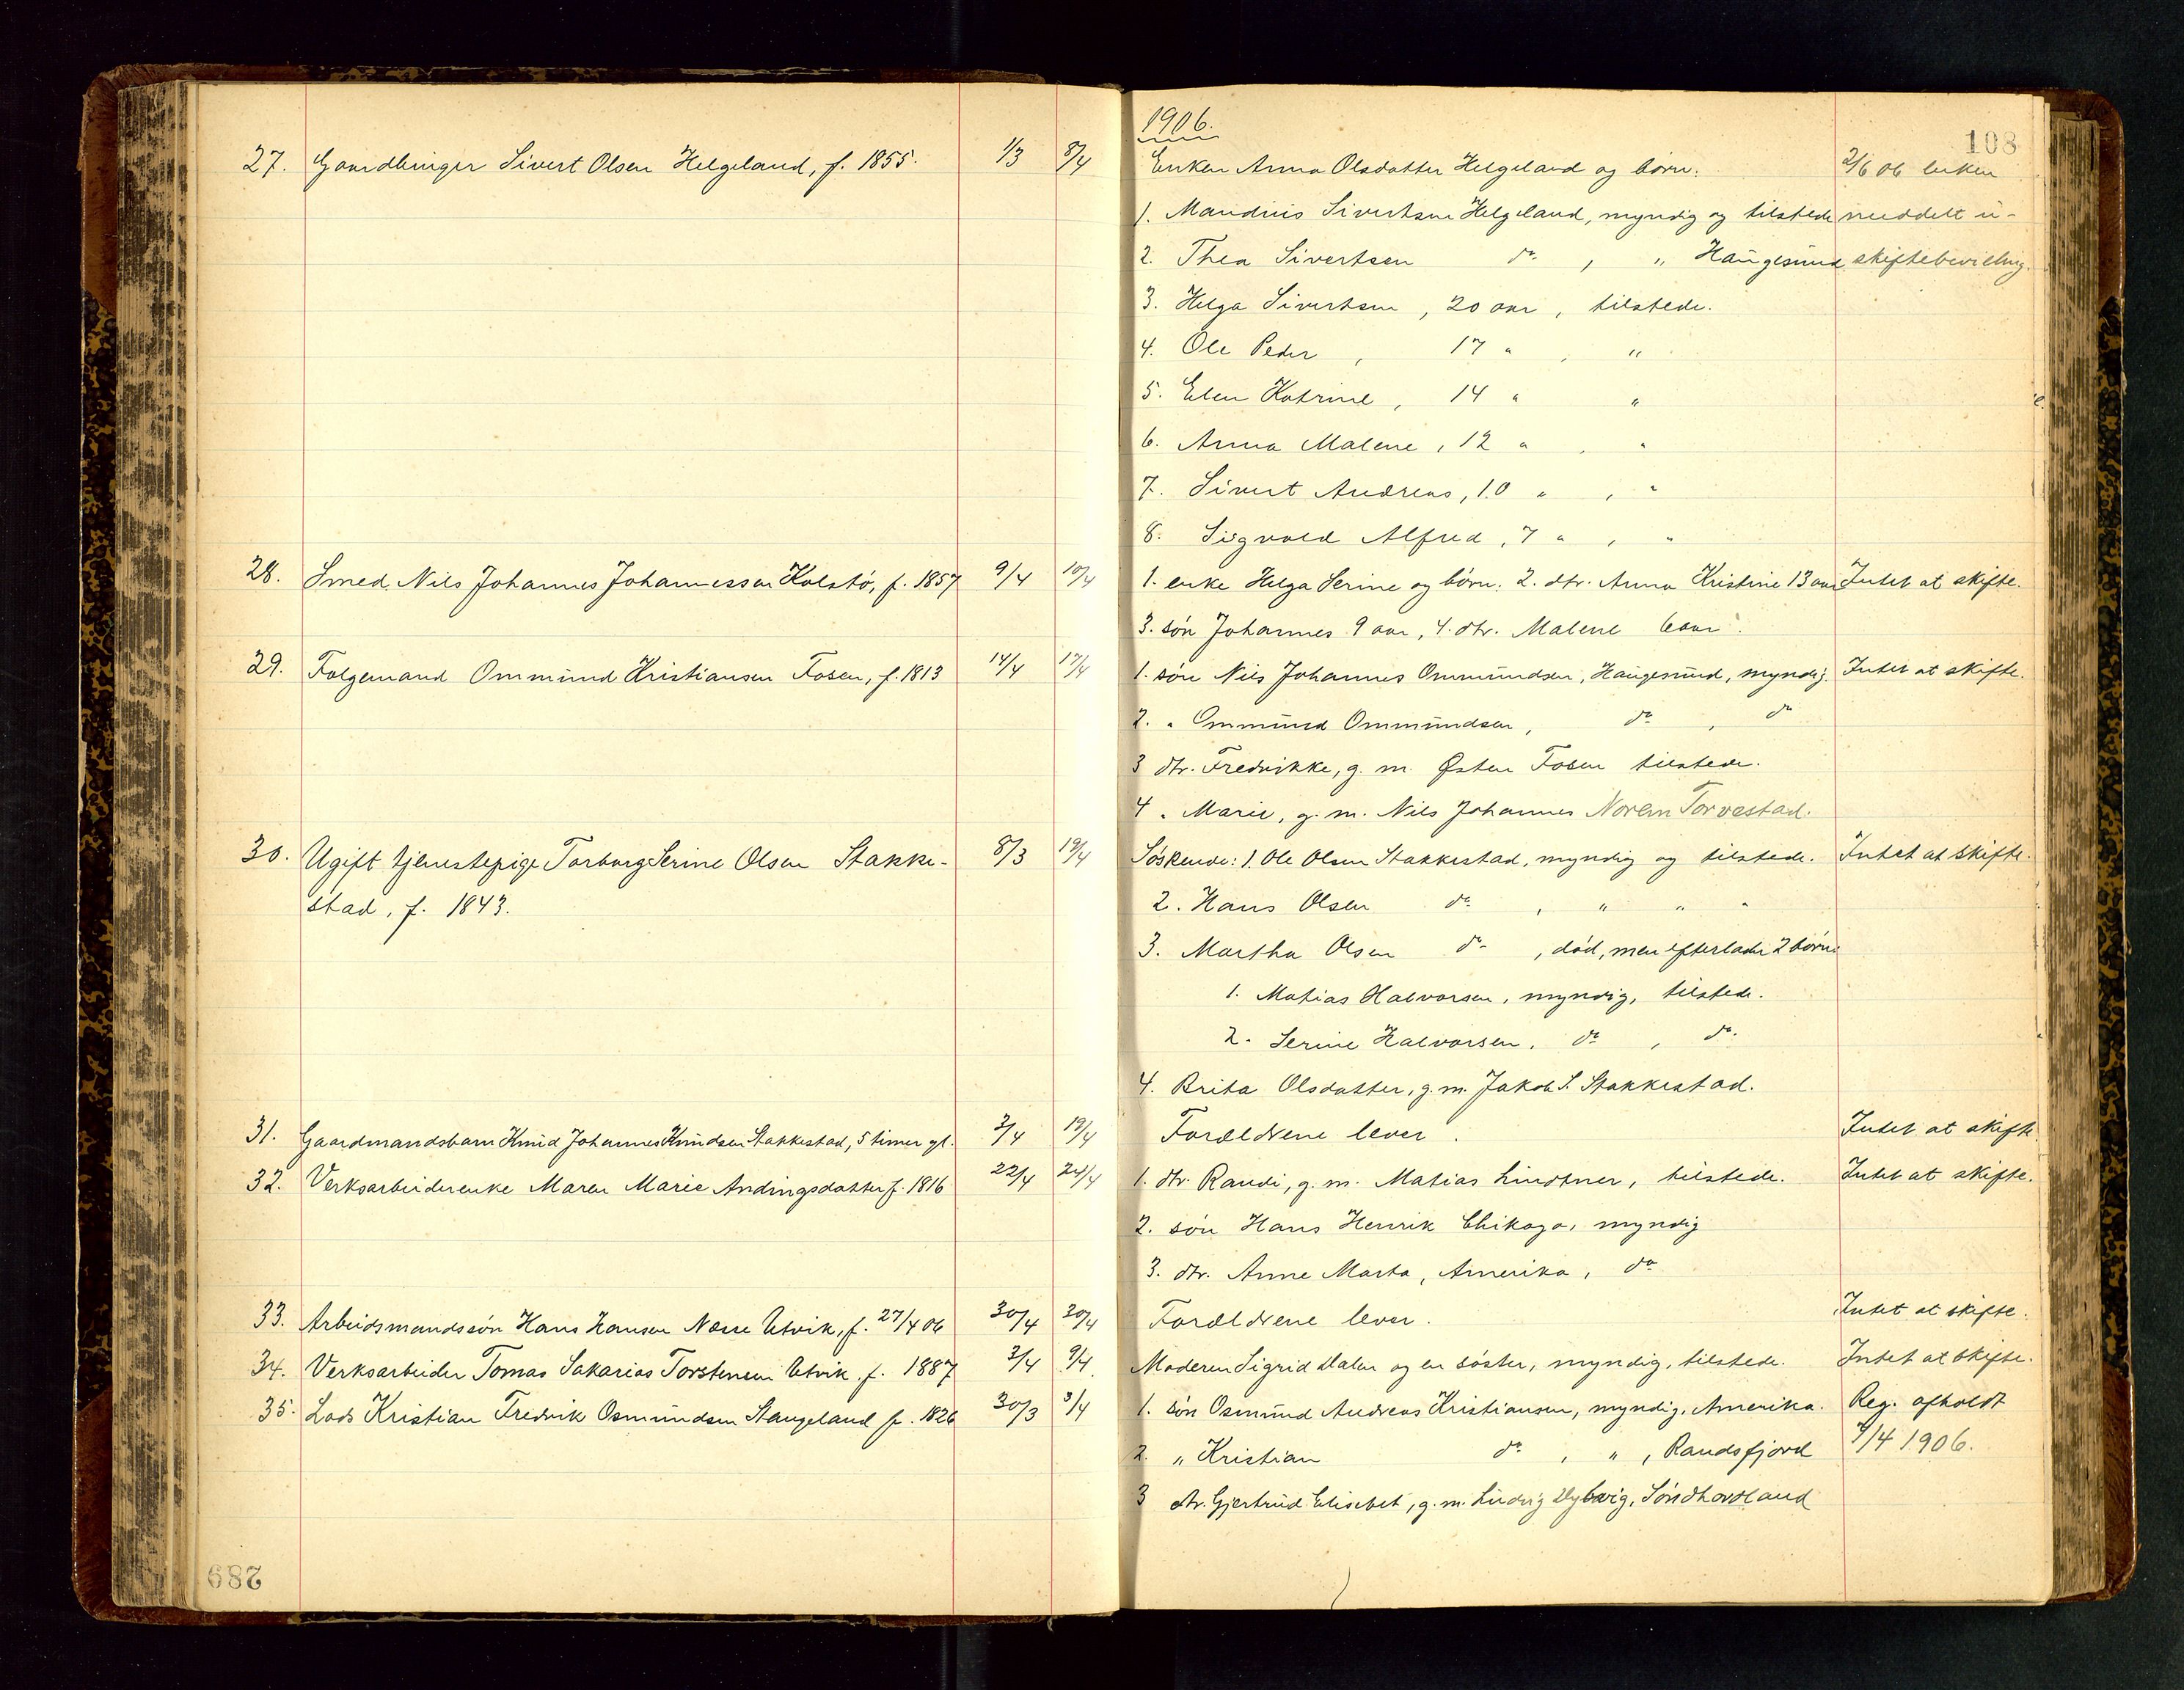 1906.
108
27. Gaardbruger Sivert Olsen Helgeland, f. 1855. 1/3 8/4 Enken Anna Olsdatter Helgeland og børn: 2/6 06 enken
1. Mandius Sivertsen Helgeland, myndig og tilstede meddelt u-
2. Thea Sivertsen do , " Haugesund skiftebevilling.
3. Helga Sivertsen, 20 aar, tilstede.
4. Ole Peder, 17 " , "
5. Elen Katrine, 14 " "
6. Anna Malene, 12 " , "
7. Sivert Andreas, 10 " , "
8. Sigvald Alfred, 7 " , "
28. Smed Nils Johannes Johannessen Kolstø, f. 1857 9/4 10/4 1. enke Helga Serine og børn: 2. dtr. Anna Kristine 13 aar Intet at skifte.
3. søn Johannes 9 aar, 4. dtr. Malene 6 aar.
29. Folgemand Ommund Kristiansen Fosen, f. 1813 14/4 17/4 1. søn Nils Johannes Ommundsen, Haugesund, myndig. Intet at skifte.
2. " Ommund Ommundsen, do , do
3 dtr. Fredrikke, g. m. Østen Fosen tilstede.
4 " Marie, g. m. Nils Johannes Norem Torvestad.
30. Ugift tjenestepige Torborg Serine Olsen Stakke- 8/3 19/4 Søskende: 1. Ole Olsen Stakkestad, myndig og tilstede. Intet at skifte.
stad, f. 1843. 2. Hans Olsen do , " " "
3. Martha Olsen do , død, men efterlader 2 børn:
1. Matias Halvorsen, myndig, tilstede.
2. Serine Halvorsen, do , do.
4. Brita Olsdatter, g. m. Jakob S. Stakkestad.
31. Gaardmandsbarn Knud Johannes Knudsen Stakkestad, 5 timer gl. 3/4 19/4 Forældrene lever. Intet at skifte
32. Verksarbeiderenke Maren Marie Andingsdatter f. 1816 22/4 24/4 1. dtr. Randi, g. m. Matias Lindtner, tilstede. Intet at skifte.
2. søn Hans Henrik Chikago, myndig
3. dtr. Anne Marta, Amerika, do
33. Arbeidsmandssøn Hans Hansen Næsse Utvik, f. 27/4 06 30/4 30/4 Forældrene lever. Intet at skifte.
34. Verksarbeider Tomas Sakarias Torstensen Utvik f. 1887 3/4 9/4. Moderen Sigrid Dalen og en søster, myndig, tilstede. Intet at skifte.
35. Lods Kristian Fredrik Osmundsen Stangeland f. 1826 30/3 3/4 1. søn Osmund Andreas Kristiansen, myndig, Amerika. Reg. afholdt
2. " Kristian do , " , Randsfjord 9/4 1906.
3 dtr. Gjertrud Elisebet, g. m. Ludvig Dybvig, Søndhordland
289